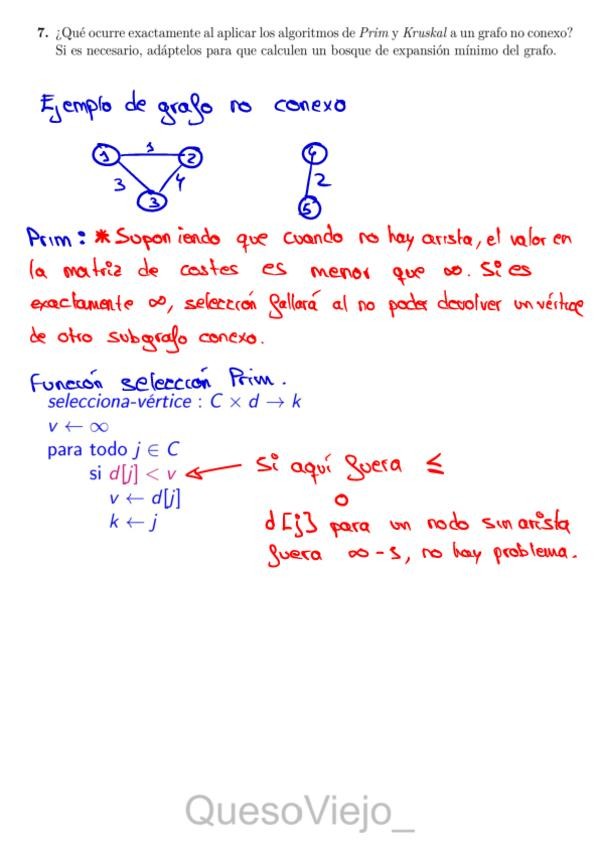 7. ¿Qué ocurre exactamente al aplicar los algoritmos de Prim y Kruskal a un grafo no conexo?
Si es necesario, adáptelos para que calculen un bosque de expansión mínimo del grafo.
Ejemplo de grafo no conexo
1 1 2 4
3 4 2
3 5
Prim: * Suponiendo que cuando no hay arista, el valor en
la matriz de costes es menor que ∞. Si es
exactamente ∞, selección fallará al no poder devolver un vértice
de otro subgrafo conexo.
Función selección Prim.
selecciona-vértice : C × d → k
v ← ∞
para todo j ∈ C
si d[j] < v ← si aquí fuera ≤
v ← d[j] o
k ← j d[j] para un nodo sin arista
fuera ∞-1, no hay problema.
QuesoViejo_